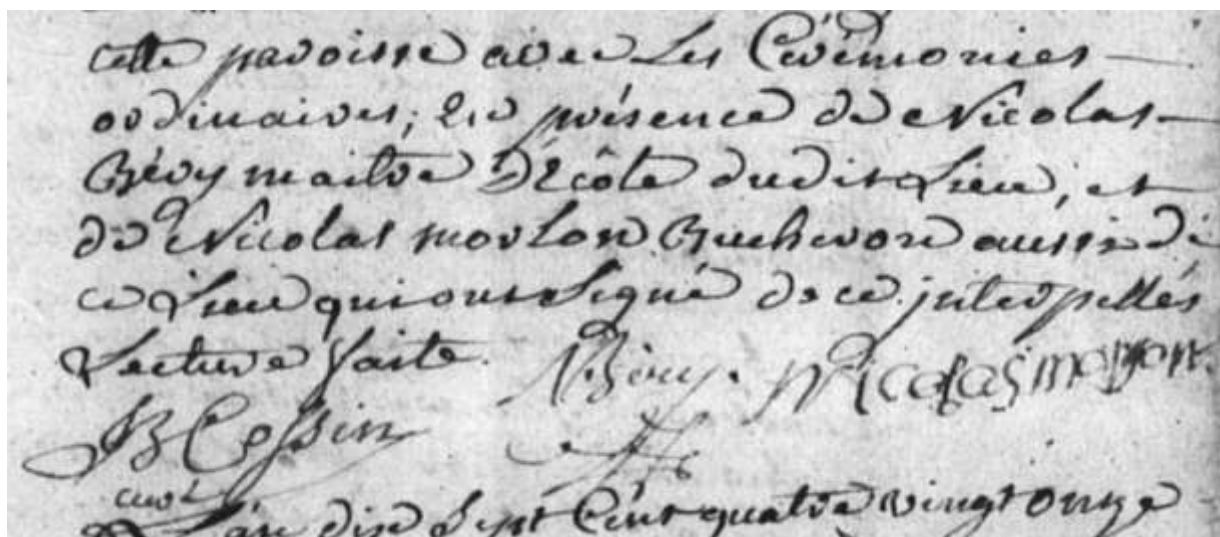 cette paroisse avec Les Cérémonies
ordinaires; En présence de Nicolas
Béry maitre D'Ecôle dudit Lieu, et
de Nicolas morlon Bucheron aussi de
ce Lieu qui ont Signé de ce jnterpellés
Lecture faite.
NBéry. Nicolas morlon
B Cossin
curé
L'an dix Sept Cent quatre vingt onze